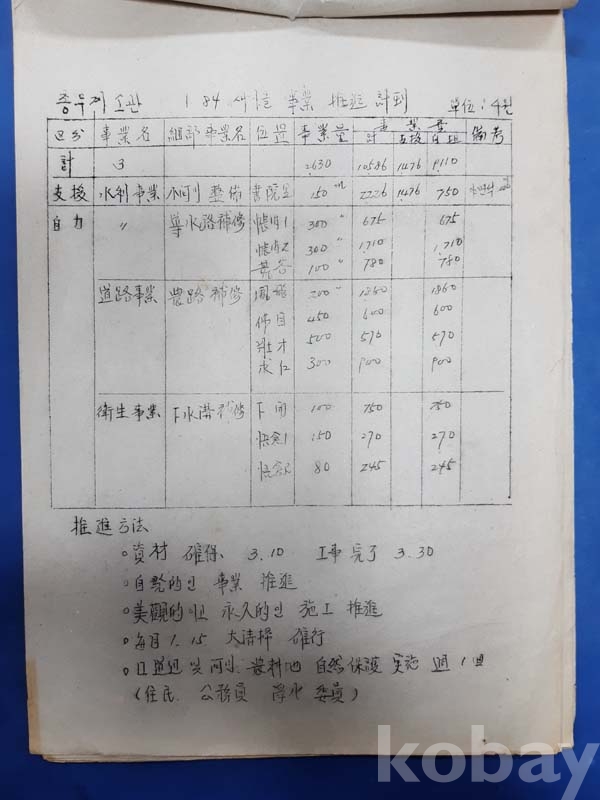 총무계 소관 1 84 새마을 事業 推進 計획 単位:千원
区分 事業名 細部事業名 位置 事業量 事業費 計 支援 自担 備考
計 3 2630 10586 1476 9110
支援 水利事業 小河川 整備 書院 150m 2226 1476 750
自力 〃 導水路補修 300〃 675 675
300〃 1710 1710
100〃 780 780
道路事業 農路補修 200〃 1860 1860
450 600 600
500 570 570
300 900 900
衛生事業 下水溝補修 100 750 750
150 270 270
80 245 245
推進方法
○資材 確保 3.10 工事完了 3.30
○自発的인 事業 推進
○美觀的이고 永久的인 施工 推進
○每月 1. 15 大清掃 確行
自然保護 実施 週1回
(住民, 公務員 委員)
kobay